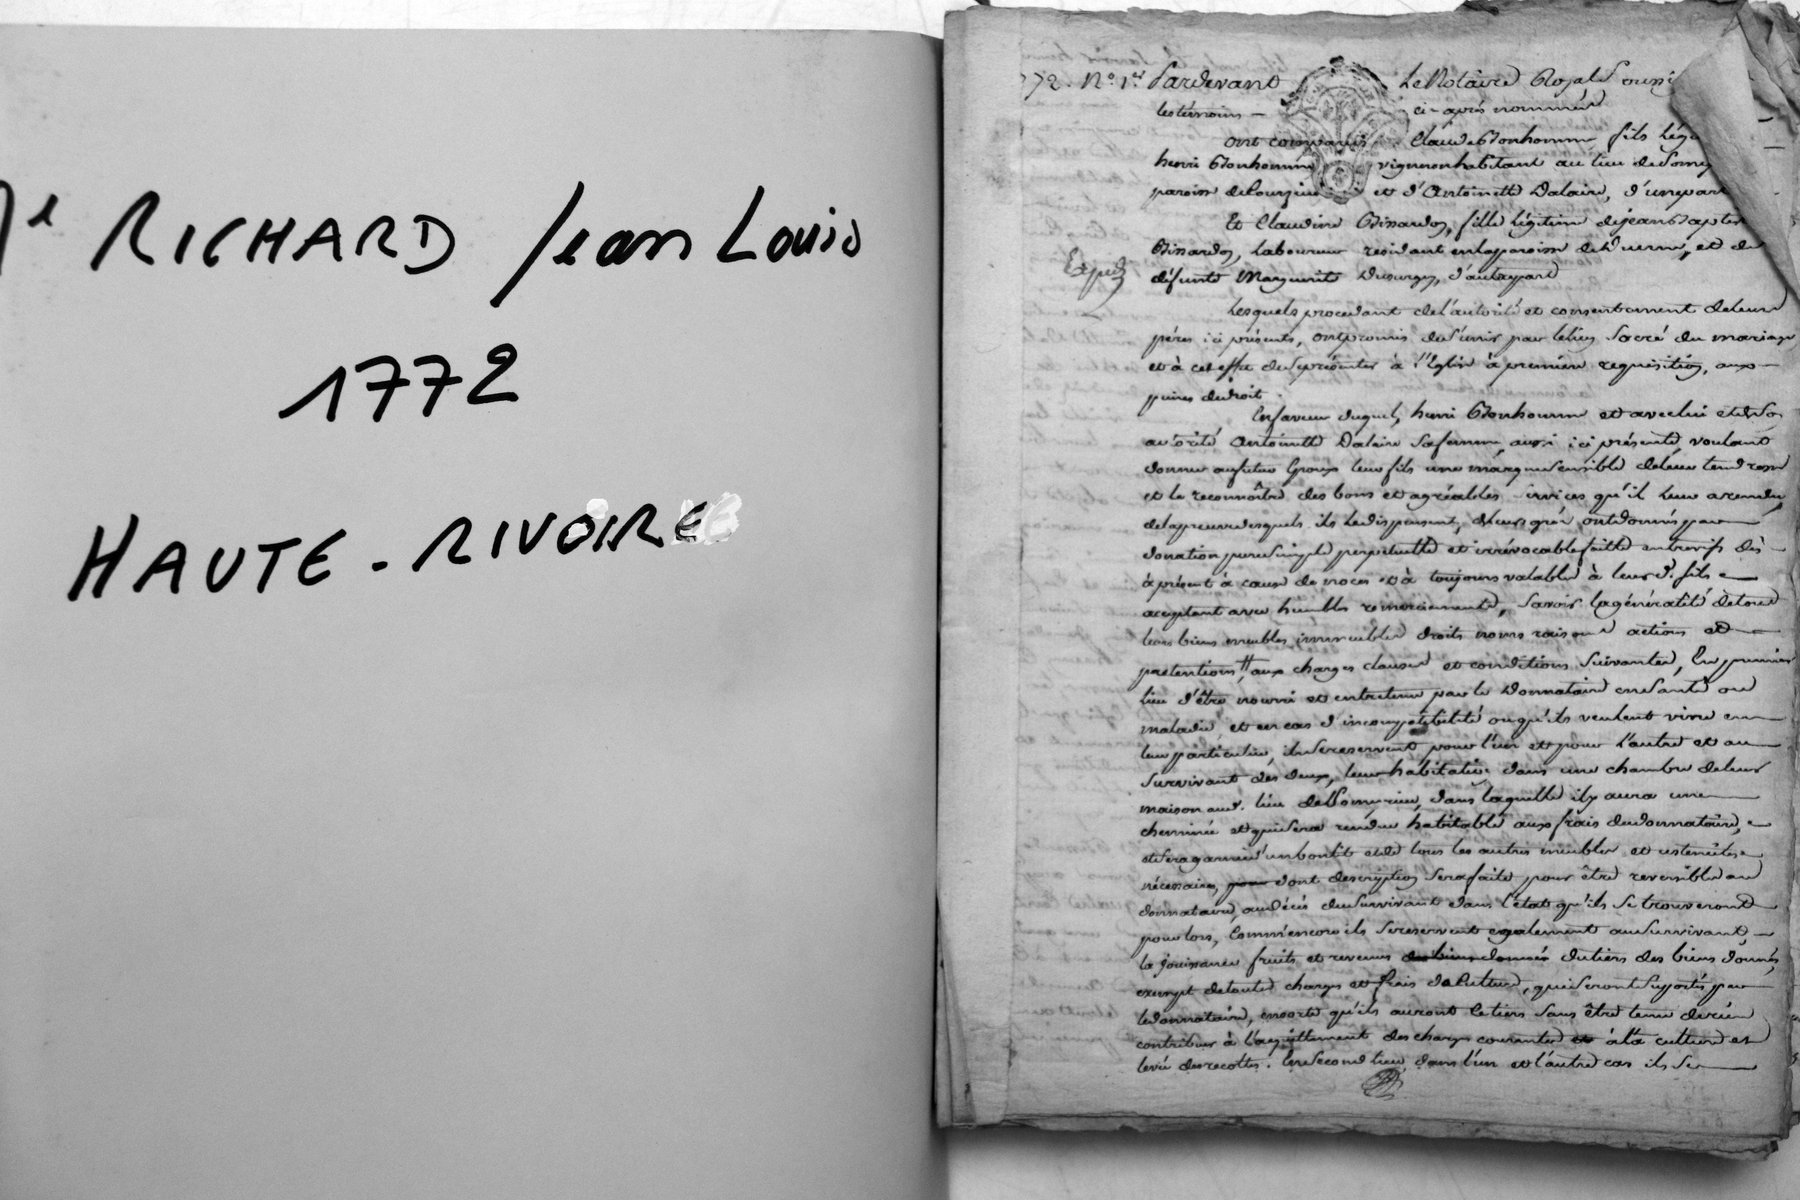 Me RICHARD Jean Louis
1772
HAUTE-RIVOIRE
72. No. 1er Pardevant Le Notaire Royal soussi
les témoins — ci-après nommés
ont comparu Claude Bonhomme fils Lég
henri Bonhomme vigneron habitant au lieu de
paroisse de et d'Antoinette Dalaire, d'une part
Et Claudine Bissardon, fille Légitime de jean Baptiste
Bissardon, Laboureur résidant en la paroisse de Duerne, et de
Expéd
défunte Marguerite Ducurger, d'autre part
Lesquels procedant de l'autorité et consentement de leurs
pères ici présents, ont promis de s'unir par le lien Sacré du mariage
et à cet effet de se présenter à l'Eglise à première requisition, aux
peines de droit.
En faveur duquel, henri Bonhomme et avec lui et de So
autorité Antoinette Dalaire sa femme, aussi ici présente, voulant
donner au futur Epoux leur fils une marque sensible de leur tendresse
et le reconnoître des bons et agréables Services qu'il leur a rendu,
de la preuve desquels ils le dispensent, de leurs gré ont donné par
donation pure simple perpetuelle et irrévocable faitte entre vifs dès
à présent à cause de noces et à toujours valable à leur d. fils
acceptant avec humbles remerciements, Savoir la généralité de tous
leurs biens meubles immeubles droits noms raisons actions et
pretentions, aux charges clauses et conditions Suivantes, En premier
lieu d'être nourri et entretenu par le Donnataire en santé ou
maladie, et en cas d'incompatibilité ou qu'ils veulent vivre en
leur particulier, ils se reservent pour l'un et pour l'autre et au
Survivant des deux, leur habitation dans une chambre de leur
maison aud. lieu de dans laquelle il y aura une
cheminée et qui sera rendue habitable aux frais du donnataire,
et sera garnie d'un bon lit et de tous les autres meubles et ustenciles
nécessaires, dont description sera faite pour être reversible au
donnataire, au décès du Survivant dans l'état qu'ils se trouveront
pour lors, Comm'encore ils se reservent egalement au Survivant,
la jouissance fruits et revenus des biens donnés du tiers des biens donnés,
exempt de toutes charges et frais de Culture, qui seront Suportés par
le donnataire, en sorte qu'ils auront le tiers sans être tenu de rien
contribuer à l'acquittement des charges courantes et à la culture et
levée des recoltes. En Second lieu dans l'un et l'autre cas ils se